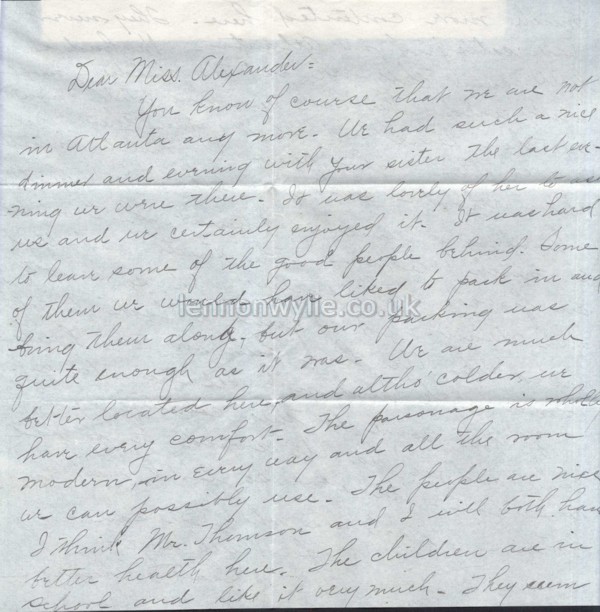 more contented here. They
Dear Miss. Alexander=
You know of course that we are not
in Atlanta any more. We had such a nice
dinner and evening with your sister the last eve-
ning we were there. It was lovely of her to
us and we certainly enjoyed it. It was hard
to leave some of the good people behind. Some
of them we would have liked to pack in and
bring them along. but our packing was
quite enough as it was. We are much
better located here, and altho' colder, we
have every comfort. The parsonage is wholly
modern, in every way and all the room
we can possibly use. The people are nice
I think Mr. Thomson and I will both have
better health here. The children are in
school and like it very much. They seem
lennonwylie.co.uk